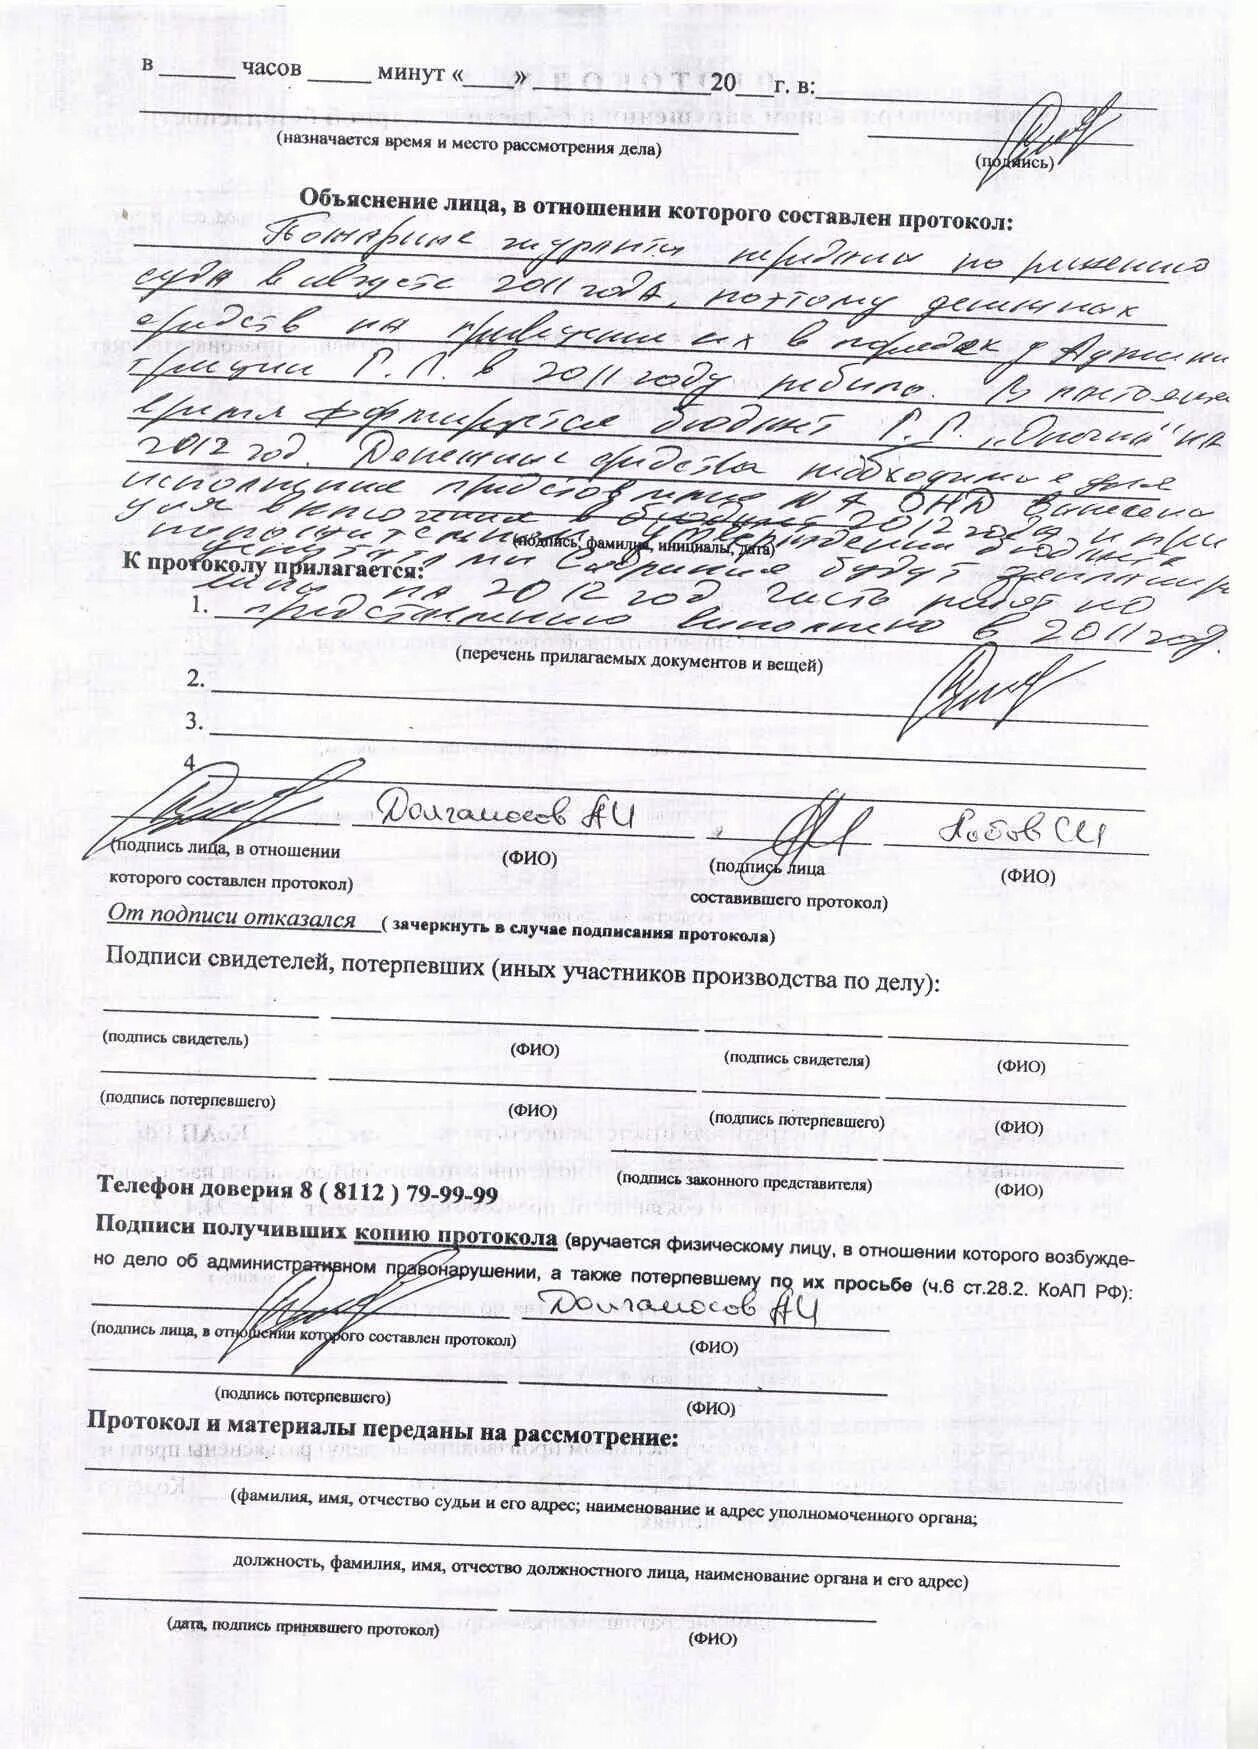 в ______ часов ____ минут «___» ___________20___г. в:
(назначается время и место рассмотрения дела)
(подпись)
Объяснение лица, в отношении которого составлен протокол:
Пожарные гидранты переданы по решению
суда в августе 2011 года, поэтому денежных
средств на приведение их в порядок у Админи
трации Г.П. в 2011 году не было. В настоящее
время формируется бюджет Г.П. „Опочка" на
2012 год. Денежные средства необходимые для
исполнение предстовления № 4 ОНД внесены
для включения в бюджет 2012 года и при
утверждении бюджета
(подпись, фамилия, инициалы, дата)
депутатами Собрания будут
К протоколу прилагается:
на 2012 год. Часть работ по
1. представлению выполнено в 2011 году.
(перечень прилагаемых документов и вещей)
2.
3.
4
Долгамосов АИ
(подпись лица, в отношении
которого составлен протокол)
(ФИО)
(подпись лица
составившего протокол)
(ФИО)
От подписи отказался ( зачеркнуть в случае подписания протокола)
Подписи свидетелей, потерпевших (иных участников производства по делу):
(подпись свидетель) (ФИО) (подпись свидетеля) (ФИО)
(подпись потерпевшего) (ФИО) (подпись потерпевшего) (ФИО)
(подпись законного представителя) (ФИО)
Телефон доверия 8 ( 8112 ) 79-99-99
Подписи получивших копию протокола (вручается физическому лицу, в отношении которого возбужде-
но дело об административном правонарушении, а также потерпевшему по их просьбе (ч.6 ст.28.2. КоАП РФ):
Долгамосов АИ
(подпись лица, в отношении которого составлен протокол) (ФИО)
(подпись потерпевшего) (ФИО)
Протокол и материалы переданы на рассмотрение:
(фамилия, имя, отчество судьи и его адрес; наименование и адрес уполномоченного органа;
должность, фамилия, имя, отчество должностного лица, наименование органа и его адрес)
(дата, подпись принявшего протокол) (ФИО)